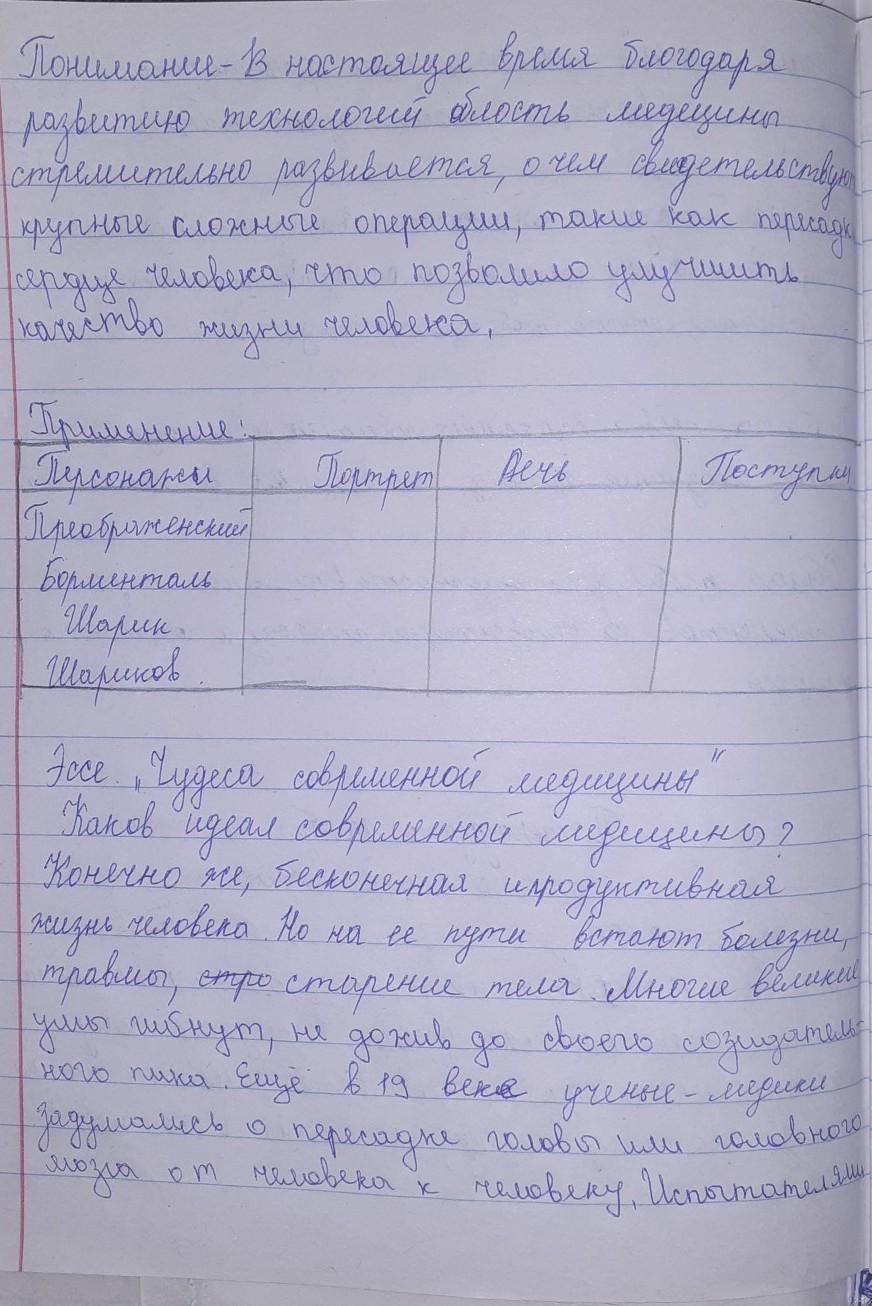 Понимание - В настоящее время благодаря
развитию технологий область медецины
стремительно развивается, о чем свидетельствуют
крупные сложные операции, такие как пересадк
сердце человека, что позволило улучшить
качество жизни человека.
Применение:
Персонажи Портрет Речь Поступки
Преображенский
Борменталь
Шарик
Шариков.
Эссе „Чудеса современной медицины"
Каков идеал современной медицины?
Конечно же, бесконечная и продуктивная
жизнь человека. Но на ее пути встают болезни,
травмы, стро старение тела. Многие великие
умы гибнут, не дожив до своего созидатель-
ного пика. Ещё в 19 веке ученые-медики
задумались о пересадке головы или головного
мозга от человека к человеку. Испытателями